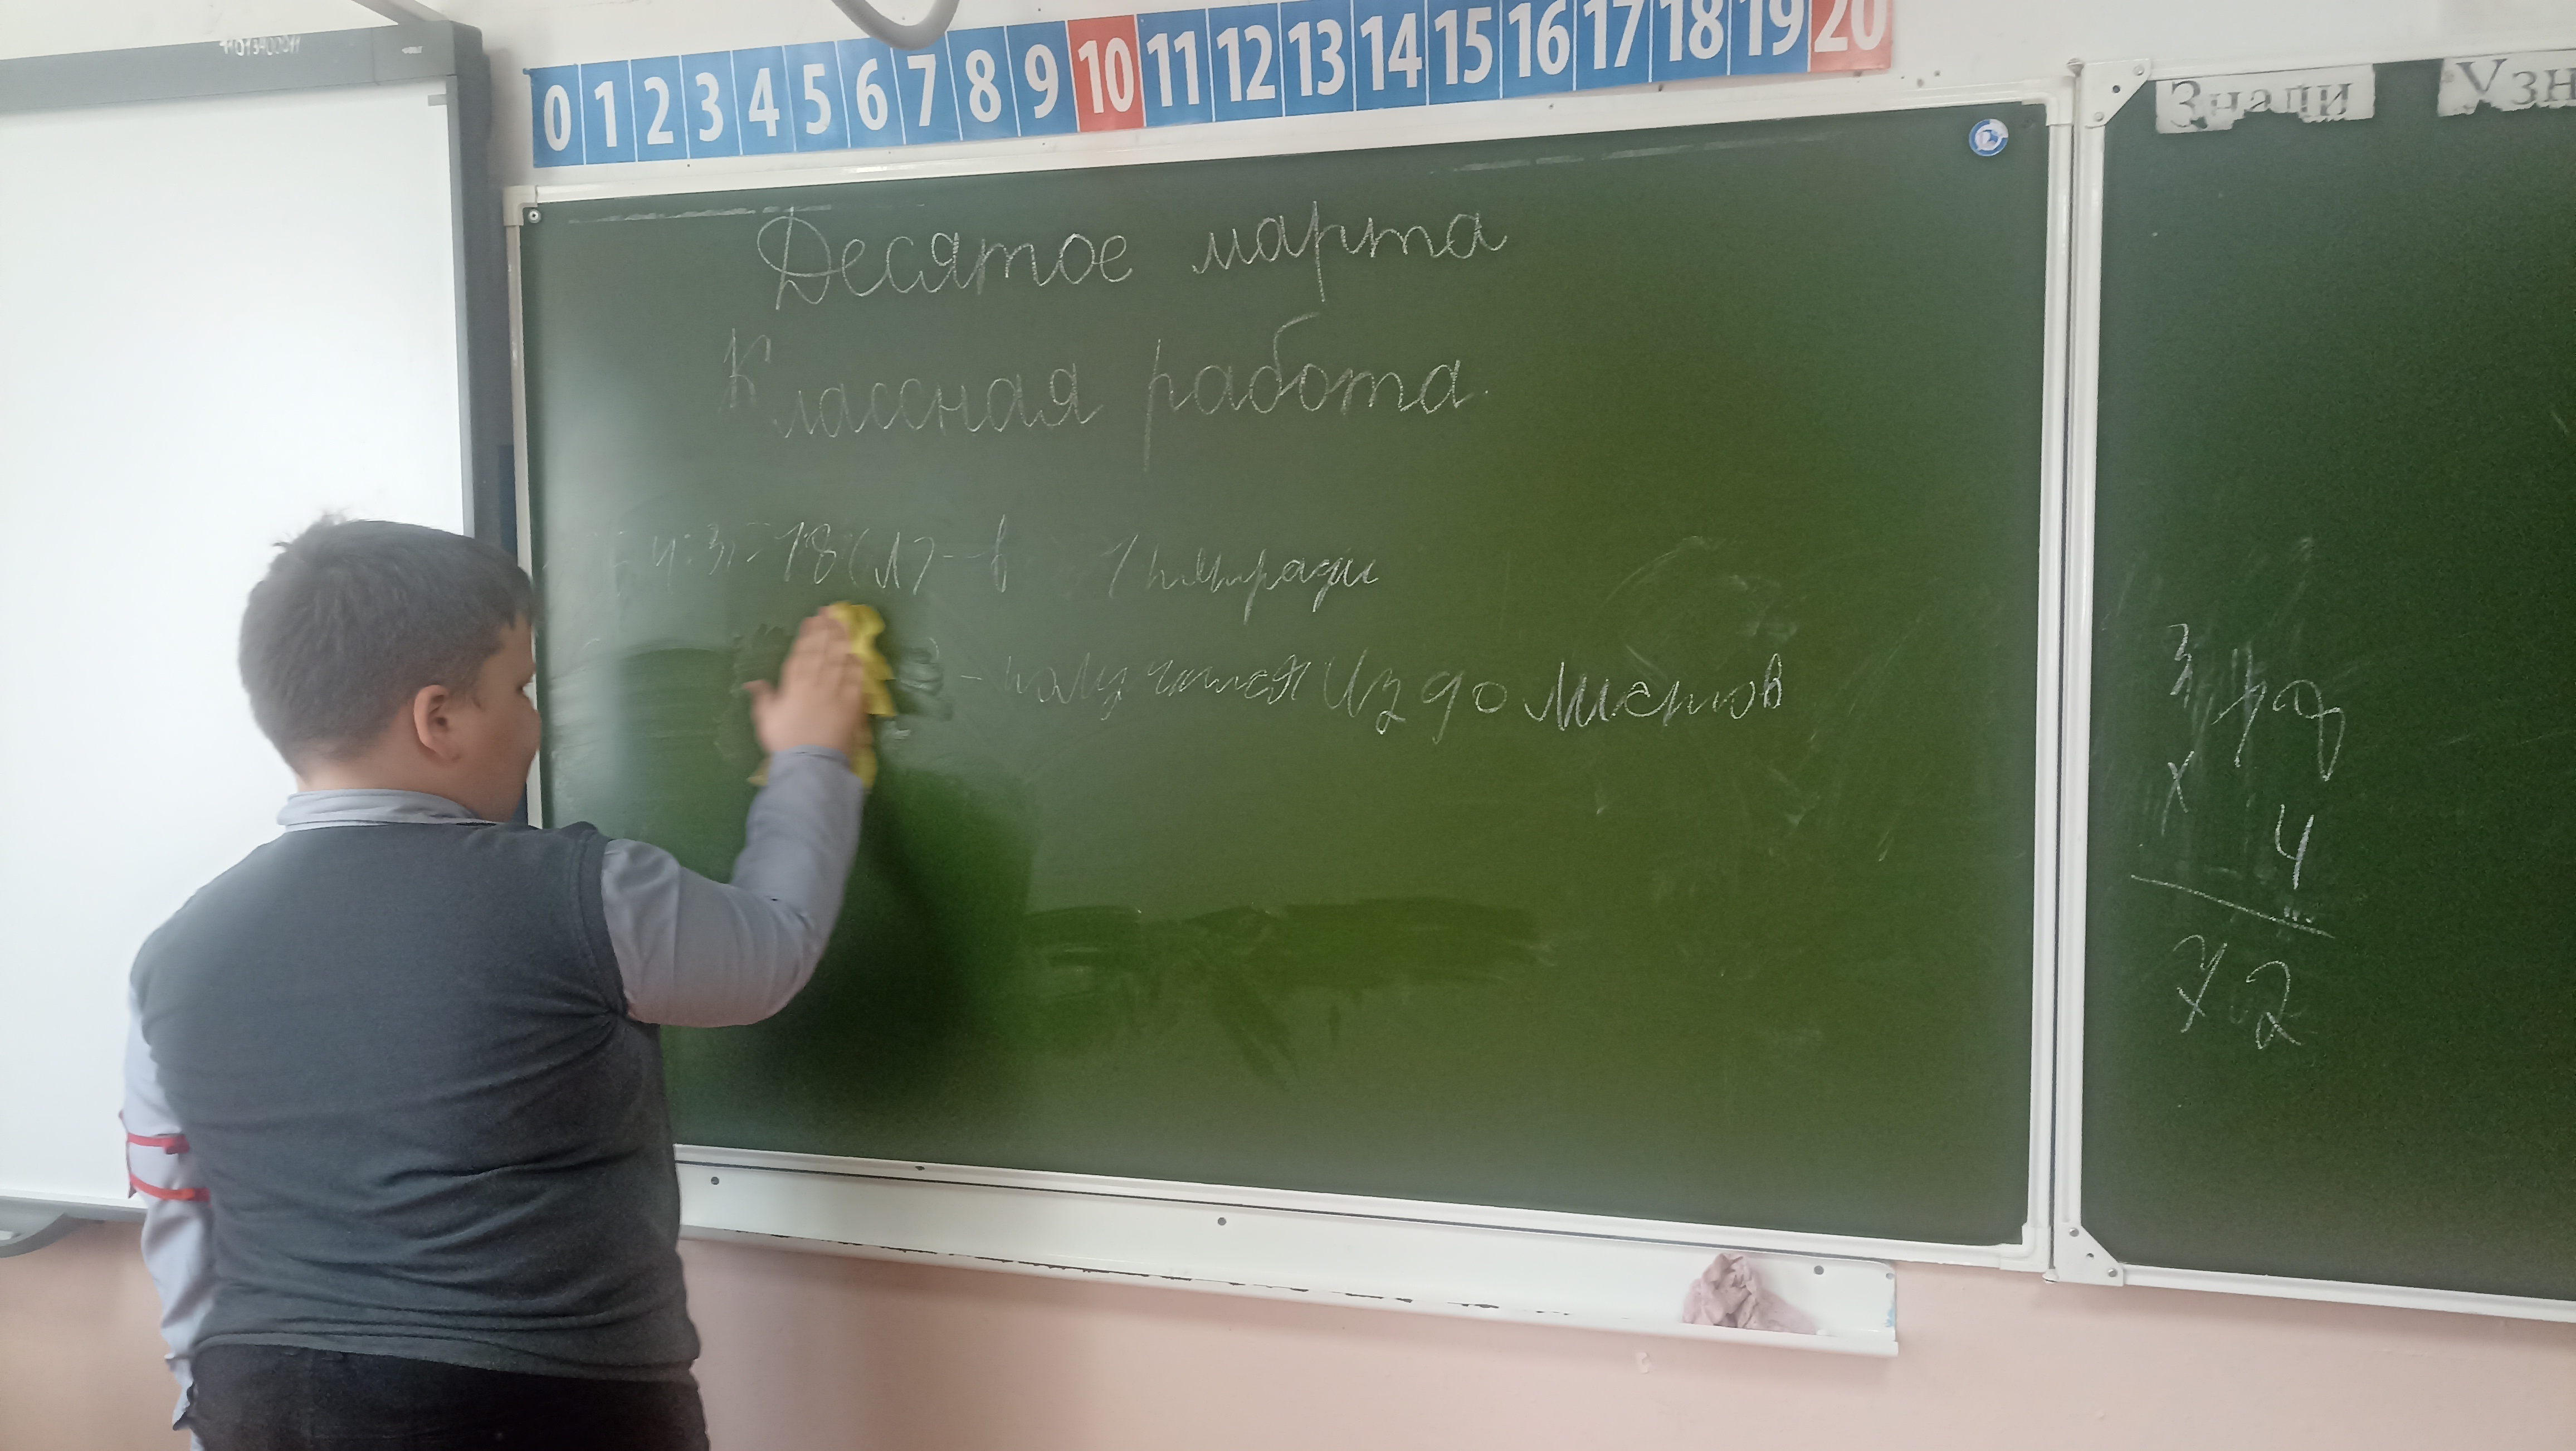 0 1 2 3 4 5 6 7 8 9 10 11 12 13 14 15 16 17 18 19 20
Знали Узн
Десятое марта
Классная работа.
4:3=18(л)-в 1 тетради
-получится Из 90 листов
3
х
4
72